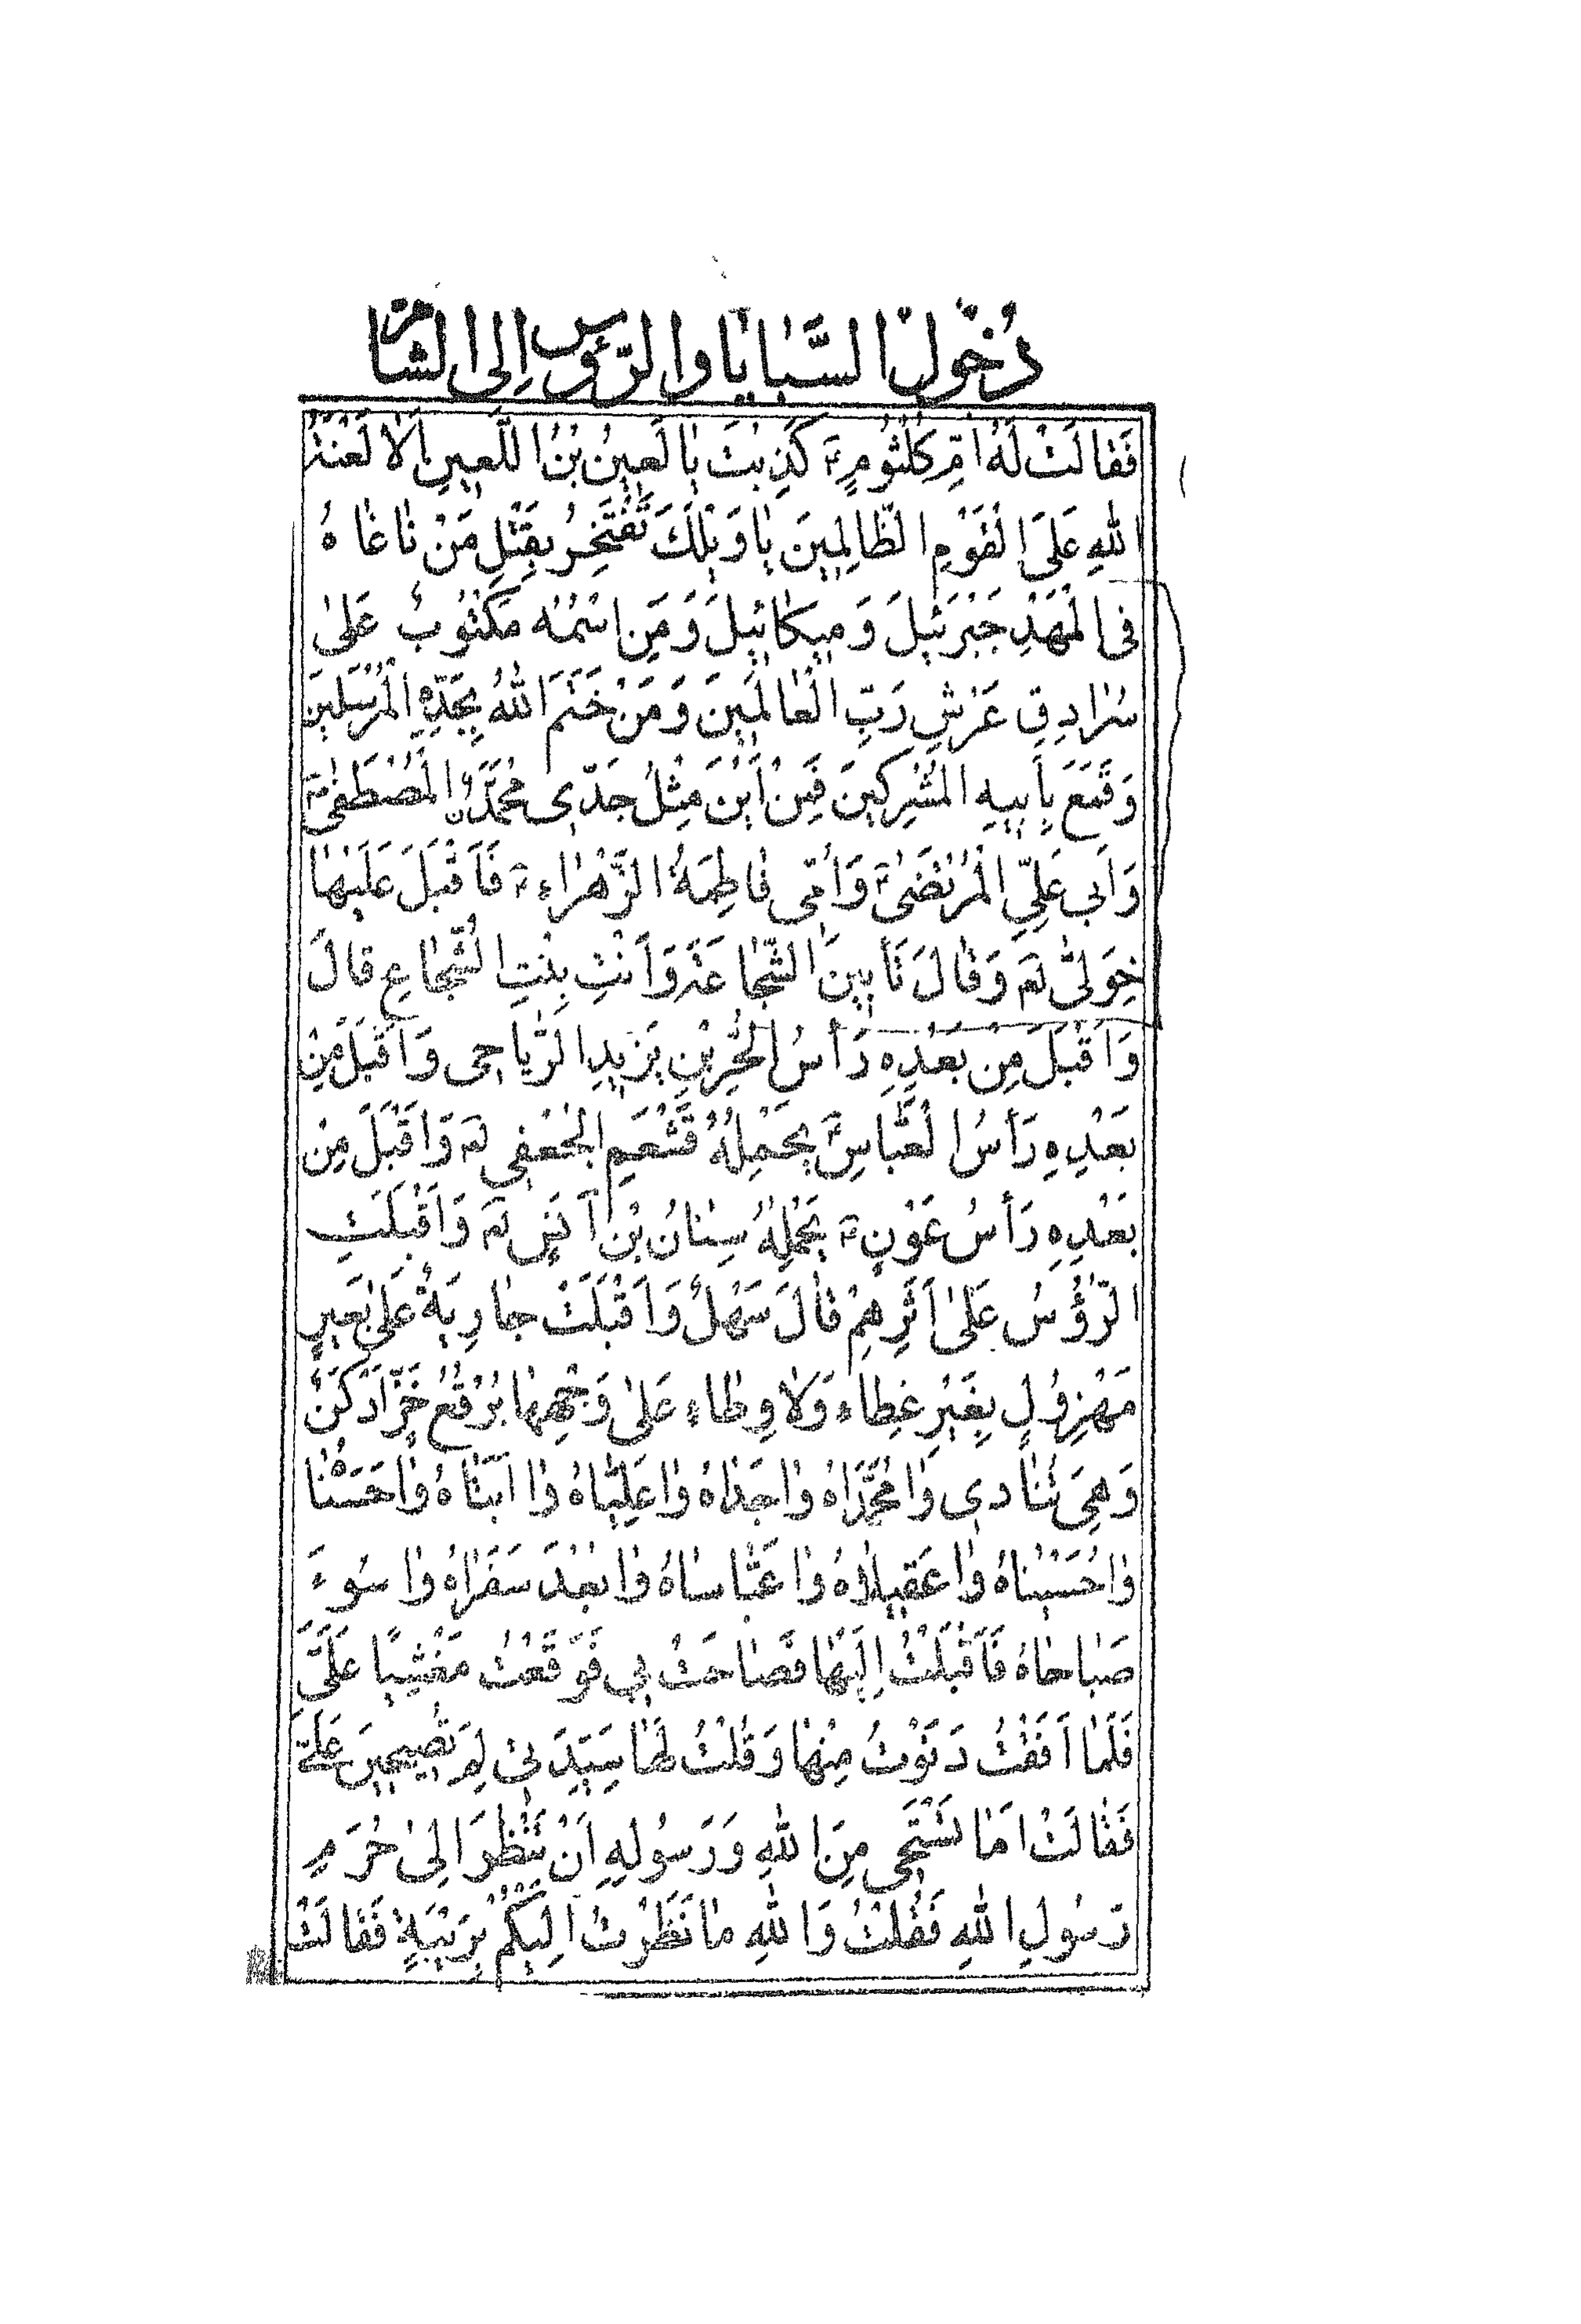 دُخُولُ السَّبايا وَالرُّؤُسِ اِلَى الشّامِ
فَقالَتْ لَهُ اُمِّ كُلْثُومٍ ع كَذِبْتَ يا لَعينُ بْنُ اللَّعينِ اَلا لَعْنَةُ
اللهِ عَلَى الْقَوْمِ الظّالِمينَ يا وَيْلَكَ تَفْتَخِرُ بِقَتْلِ مَنْ ناغاهُ
فِي الْمَهْدِ جَبْرَئيلَ وَميكائيلَ وَمَنِ اسْمُهُ مَكْتُوبٌ عَلىٰ
سُرادِقِ عَرْشِ رَبِّ الْعالَمينَ وَمَنْ خَتَمَ اللهُ بِجَدِّهِ الْمُرْسَلينَ
وَقَمَعَ بِاَبيهِ الْمُشْرِكينَ فَمِنْ أَيْنَ مِثْلُ جَدّي مُحَمَّدٌ الْمُصْطَفىٰ ص
وَاَبي عَلِيِّ الْمُرْتَضىٰ ع وَأُمّي فاطِمَةُ الزَّهْراءِ ع فَاَقْبَلَ عَلَيْها
خِوَلىّٰ لع وَقالَ تَأبينَ الشَّجاعَةَ وَأَنْتِ بِنْتِ الشُّجاعِ قالَ
وَاَقْبَلَ مِنْ بَعْدِهِ رَأسُ الْحُرِّ بْنِ يَزيدِ الرِّياحِى وَاَقْبَلَ مِنْ
بَعْدِهِ رَأسُ الْعَبّاسِ ع يَحْمِلُهُ قَشْعَمِ الْجُعْفي لع وَاَقْبَلَ مِنْ
بَعْدِهِ رَأسُ عَوْنٍ ع يَحْمِلُهُ سِنانُ بْنِ اَنَسٍ لع وَاَقْبَلَتِ
الرُّؤُسُ عَلىٰ اَثَرِهِمْ قالَ سَهْلٌ وَاَقْبَلَتْ جارِيَةٌ عَلىٰ بَعيرٍ
مَهْزُولٍ بِغَيْرِ غِطاءٍ وَلا وِطاءٍ عَلىٰ وَجْهِها بُرْقُعُ خَزٍّ اَدْكَنٌ
وَهِيَ تُنادي وا مُحَمَّداهُ وا جَدّاهُ وا عَلِيّاهُ وا اَبَتاهُ وا حَسَنا
وا حُسَيْناهُ وا عَقيلاهُ وا عَبّاساهُ وا بُعْدَ سَفَراهُ وا سُوءَ
صَباحاهُ فَاَقْبَلْتُ اِلَيْها فَصاحَتْ بي فَوَقَعْتُ مَغْشِيًّا عَلَيَّ
فَلَمّا اَفَقْتُ دَنَوْتُ مِنْها وَقُلْتُ لَها سَيِّدَتي لِمَ تَصيحينَ عَلَيَّ
فَقالَتْ اَما تَسْتَحي مِنَ اللهِ وَرَسُولِهِ اَنْ تَنْظُرَ اِلىٰ حُرَمِ
رَسُولِ اللهِ فَقُلْتُ وَاللهِ ما نَظَرْتُ اِلَيْكُمْ بِرَيْبَةٍ فَقالَتْ